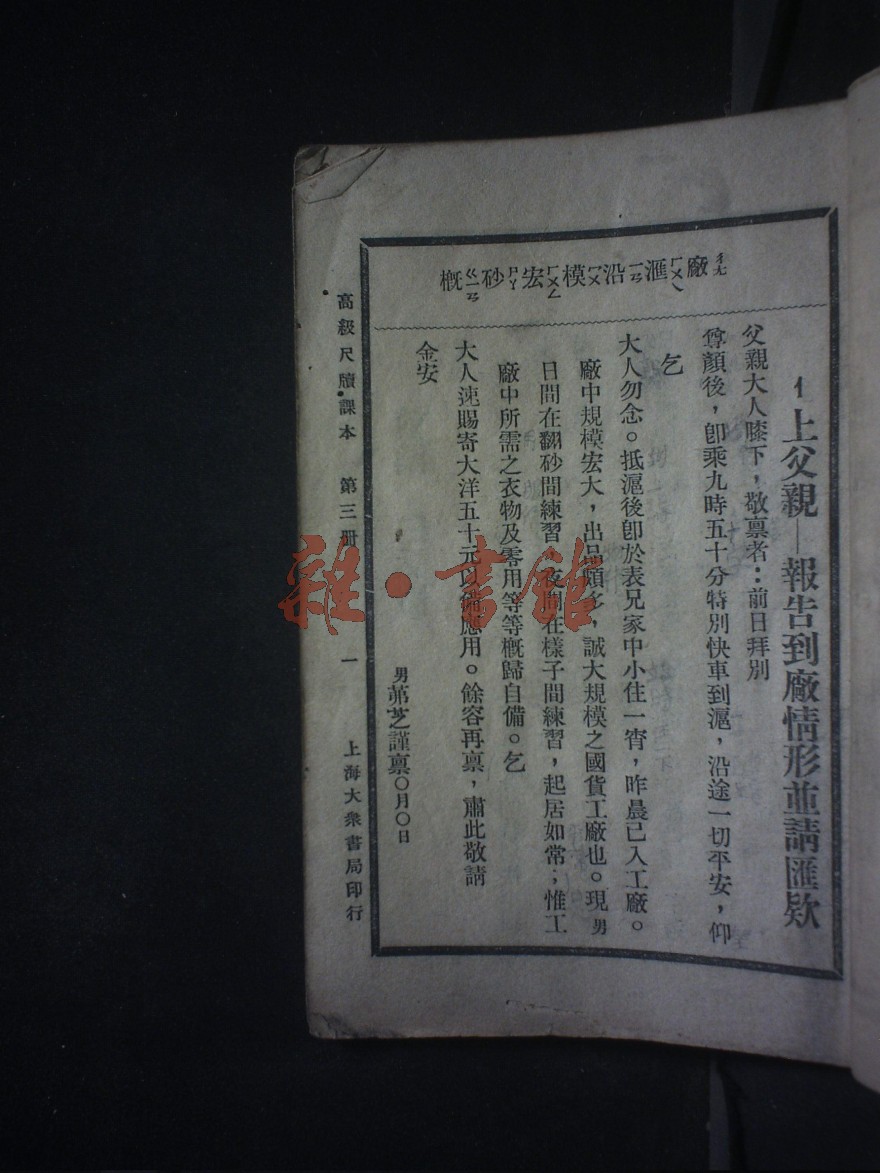 廠ㄔㄤ 滙ㄏㄨㄟ 沿ㄧㄢ 模ㄇㄨ 宏ㄏㄨㄥ 砂ㄕㄚ 概ㄍㄞ
上父親——報告到廠情形並請匯欵
父親大人膝下，敬禀者：前日拜別
尊顏後，卽乘九時五十分特別快車到滬，沿途一切平安，仰
乞
大人勿念。抵滬後卽於表兄家中小住一宵，昨晨已入工廠。
廠中規模宏大，出品頗多，誠大規模之國貨工廠也。現男
日間在翻砂間練習，夜間在樣子間練習，起居如常；惟工
廠中所需之衣物及零用等等概歸自備。乞
大人速賜寄大洋五十元以備應用。餘容再禀，肅此敬請
金安
男苐芝謹禀〇月〇日
高級尺牘課本 第三册 一 上海大衆書局印行
雜·書館